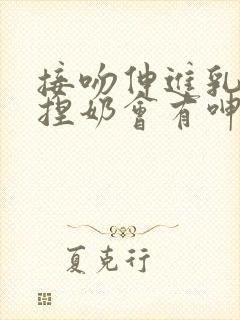 接吻伸進乳
捏奶會有呻
夏克行